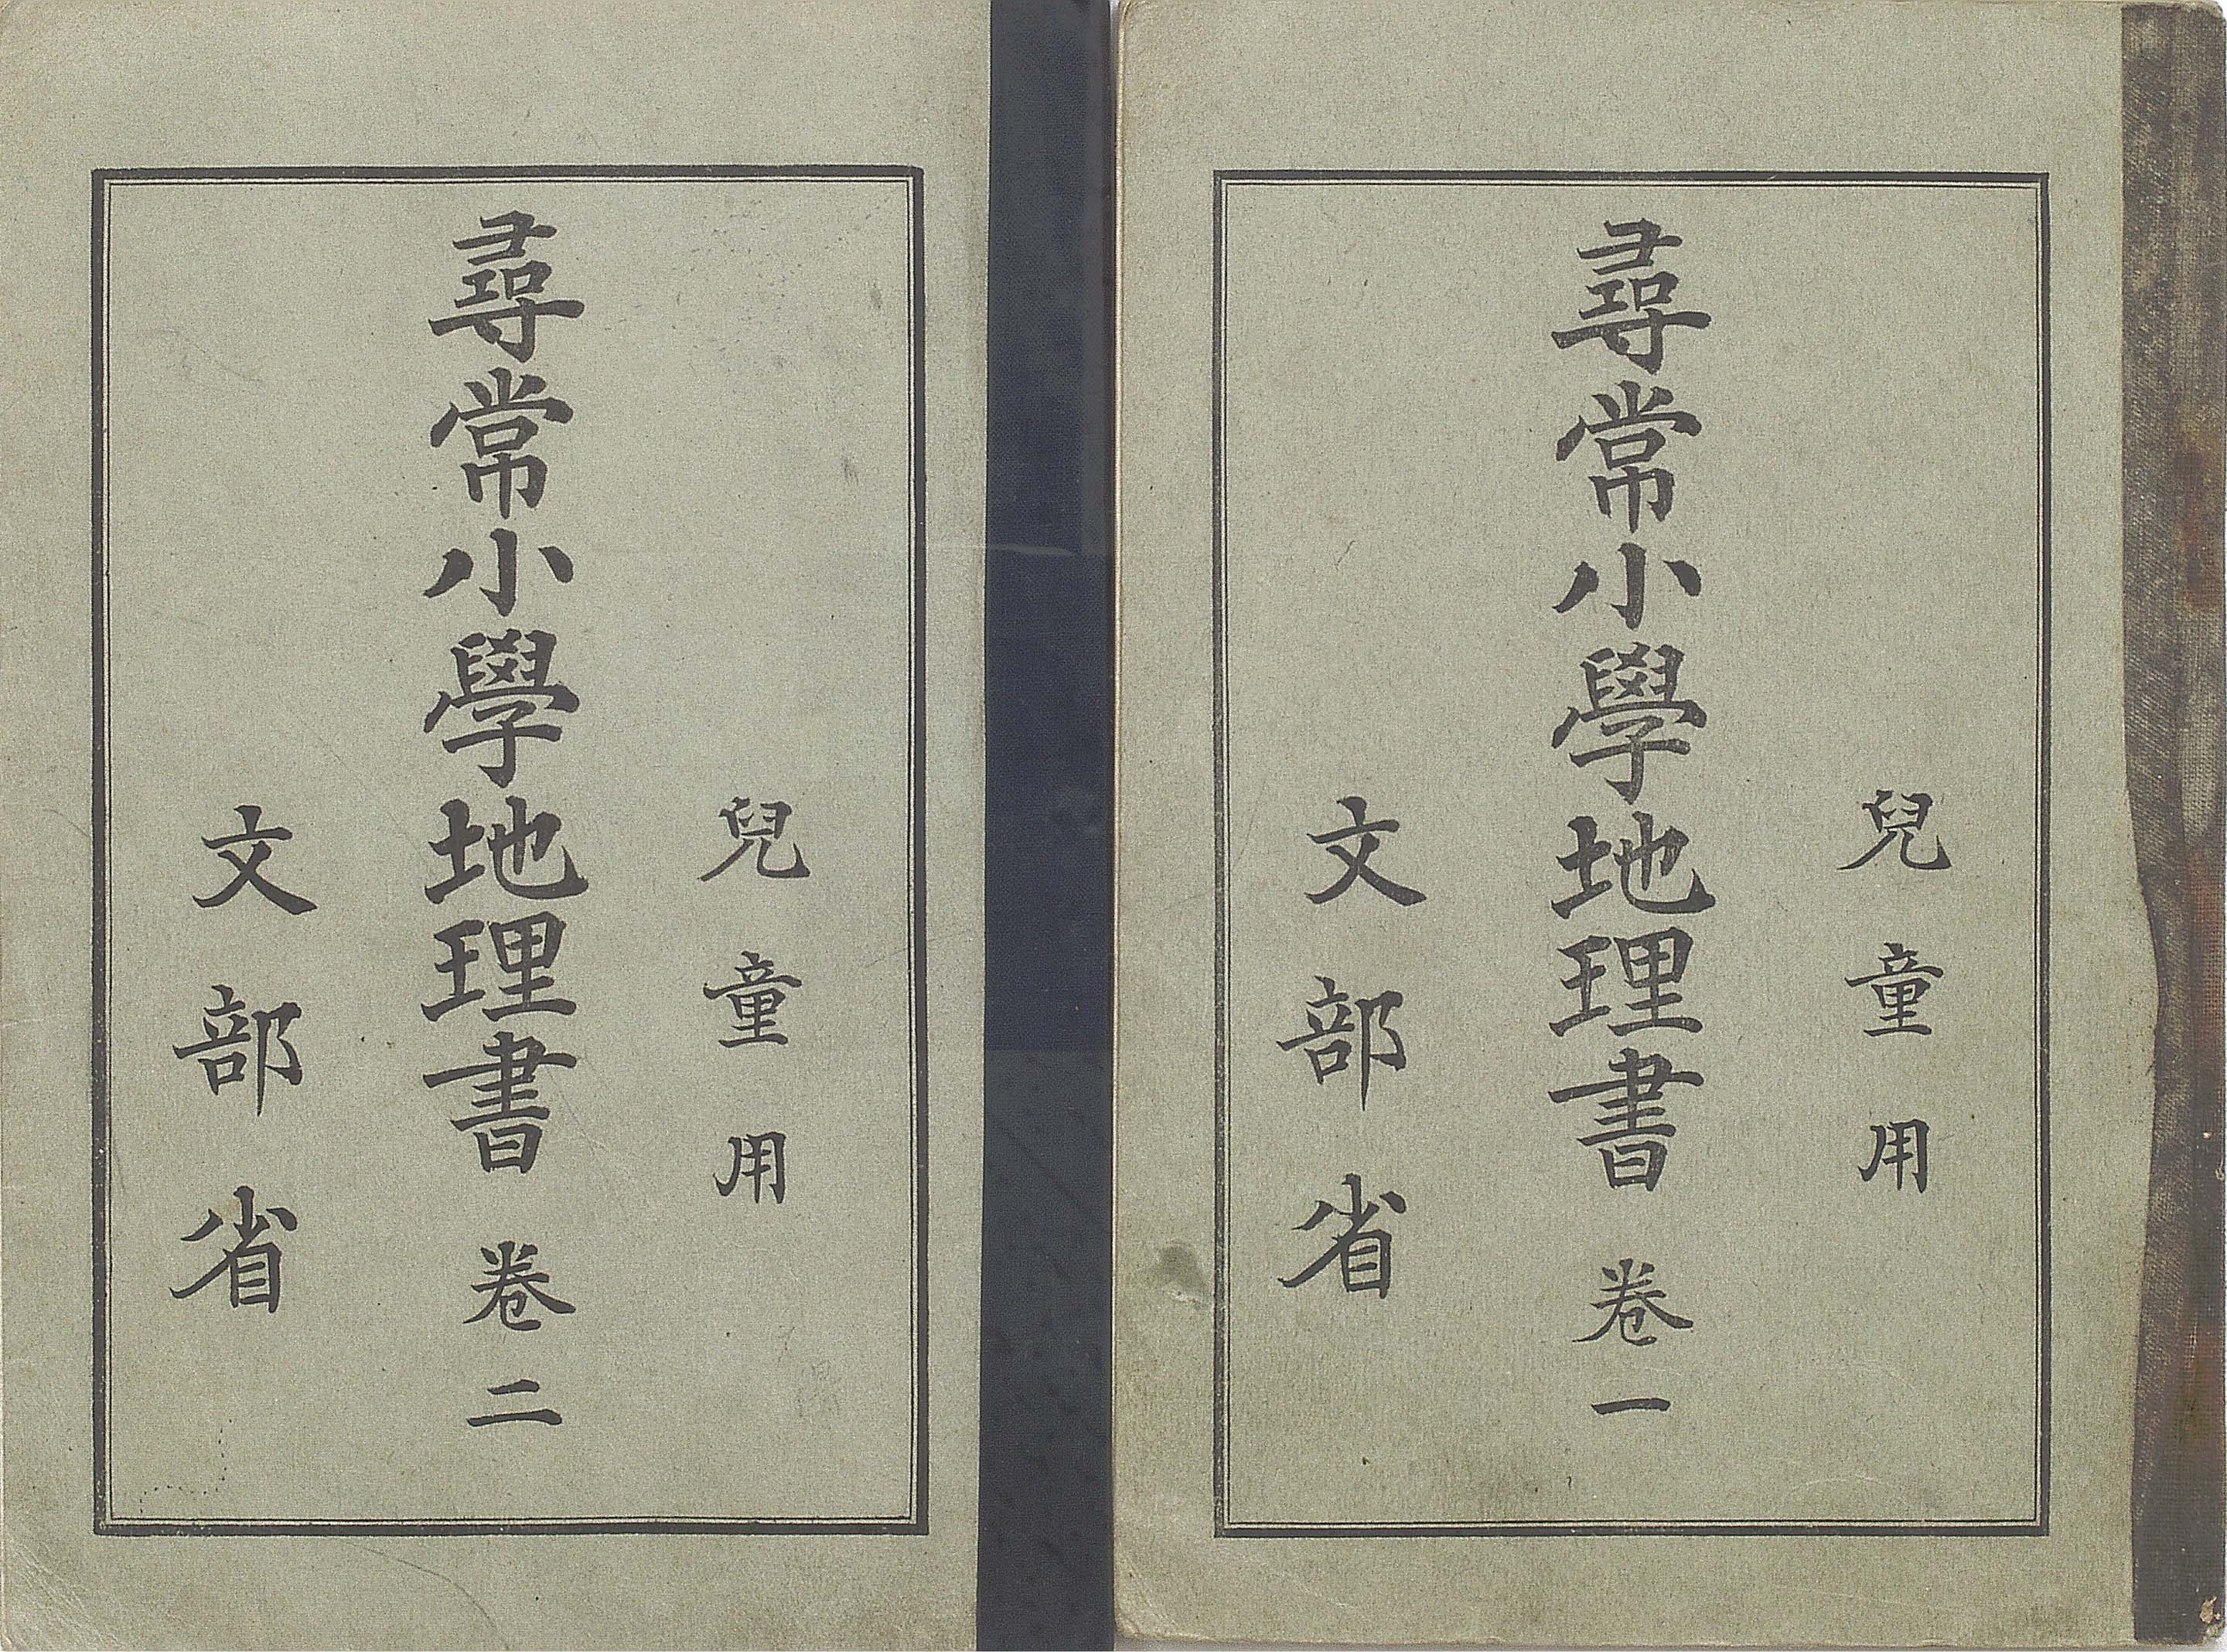 兒童用
尋常小學地理書 卷一
文部省
兒童用
尋常小學地理書 卷二
文部省